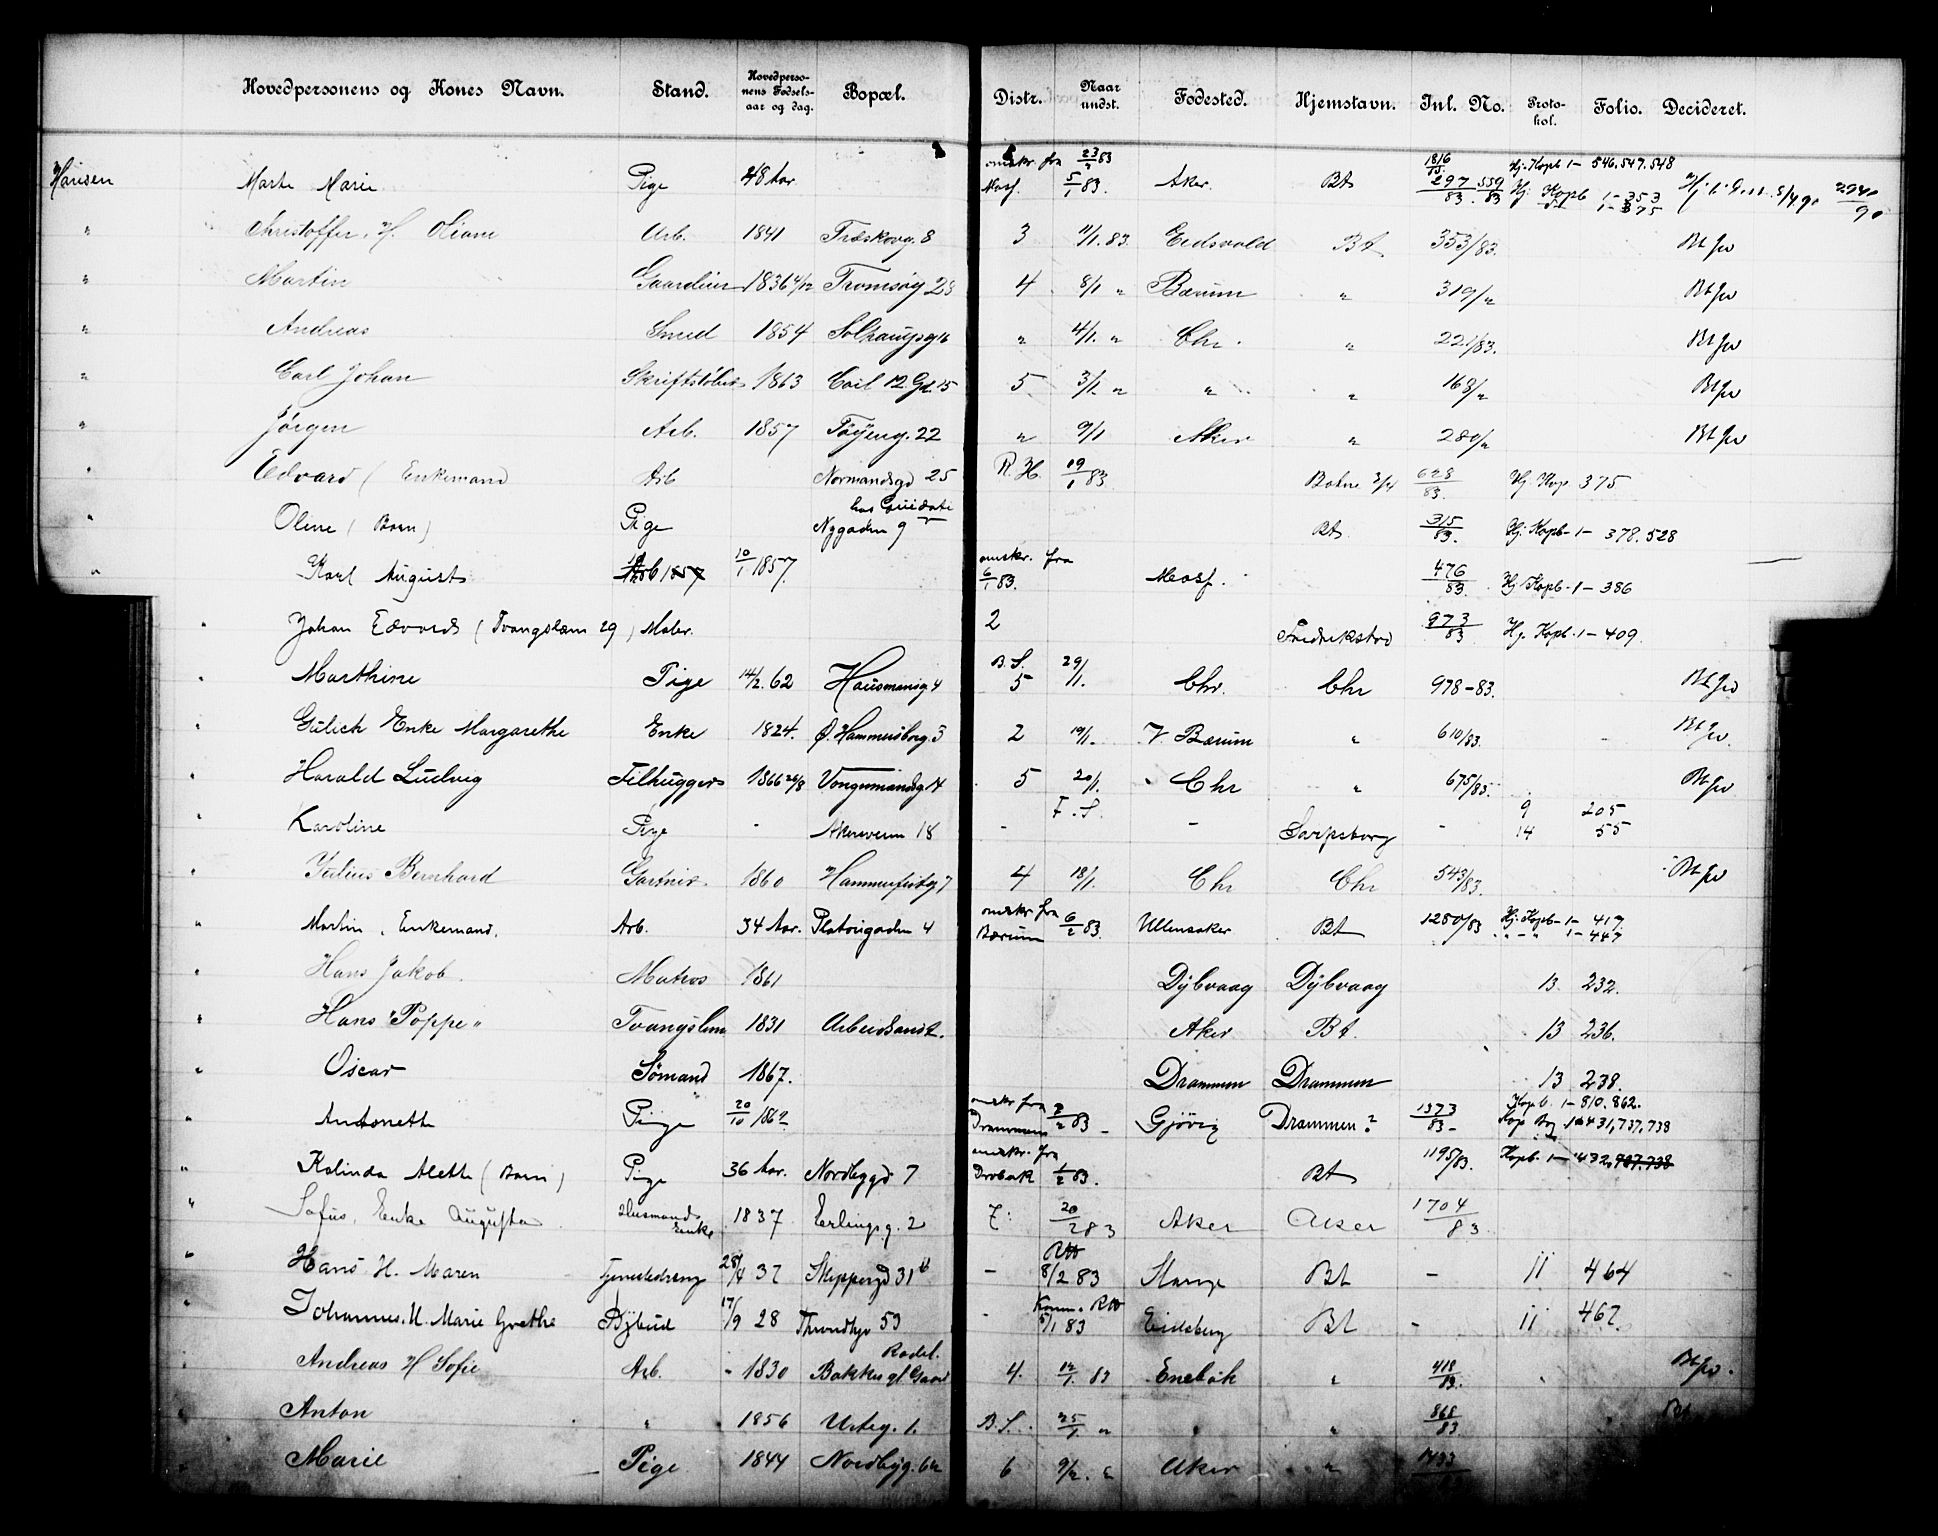 Hovedpersonens og Kones Navn. Stand. Hovedpersonens Fødselsaar og dag. Bopæl. Distr. Naar undst. Fødested. Hjemstavn. Inl. No. Protokol. Folio. Decideret.
omskr. fra 23/2 83 1816/15 Hj. Kopb 1- 546.547.548
Hansen Marte Marie Pige 48 Aar. Mosf. 5/1 83. Aker. Bt 297/83. 559/83 Hj. Kopb 1-353 1-375 /4 90 /90
" Christoffer. H. Oliane Arb. 1841 Træskovg. 8 3 11/1. 83. Eidsvold Bt 353/83. Bt fw
" Martin 1836 4/12 Tromsøg 23 4 8/1 " Bærum " 319/" Bt fw
" Andreas Smed 1854 Solhaugsg 16 " 4/1. " Chr. " 221/83. Bt fw
" Carl Johan Skriftstøber 1863 Carl 12 Gd. 15 5 3/1 " " " 168/" Bt fw
" Jörgen Arb. 1857 Töyeng. 22 " 9/1 Aker " 280/" Bt fw
" Edvard (Enkemand Arb Normandsgd 25 R. H. 19/1 83. Botne 3/4 628/83. Hj. Kop. 375
" Oline (Barn) Pige Nygaden 9 Bt. 315/83. Hj. Kopb-1- 378.528
" Karl August Arb 1857 10/1 1857. omskr. fra 6/1 83. Mosf. 476/83. Hj Kopb-1- 386
" Johan Edvard (Tvangslem 29) Maler. 2 Fredrikstad 973/83 Hj. Kopb-1- 409.
" Marthine Pige 14/2. 62 Hausmansg 4 B. S. 5 29/1. Chr. Chr 978-83. Bt fw
" Gulich Enke Margarethe Enke 1824. Ø. Hammersborg. 3 2 19/1. V. Bærum " 610/83. Bt fw.
" Harald Ludvig Filhugger 1866 26/8 Vongnmandsg 14 5 20/1. Chr " 675/83. Bt fw
" Karoline Pige - Akersveien 18 - F. S. - Sarpsborg - 9 205
14 55
" Julius Bernhard Gartner. 1860 Hammerfestg 7 4 18/1. Chr Chr 543/83. Bt fw
" Martin, Enkemand. Arb. 34 Aar. Platougaden 4 omskr fra Bærum 6/2 83. Ullensaker Bt 1280/83 Hj. Kopb- 1- 417.
" - " 1- 447
" Hans Jakob. Matros 1861 Dybvaag Dybvaag 13 232.
" Hans "Poppe" Tvangslem 1831 Arbeidsanst. Aker Bt. 13 236.
" Oscar Sömand 1867. Drammen Drammen 13 238.
" Antonette Pige 20/10 1862 omskr fra Drammen 2/2 83 - Gjövig Drammen? 1373/83- Kopb. 1- 810.862.
Kop Bog 1-431,737.738
" Kalinda Alette (Barn) Pige 36 Aar. Nordbygd 7 omskr. fra Drøbak 1/2 83. Bt 1195/83. Kopb. 1- 432, 737.738
" Sofus, Enke Augusta Husmands Enke 1837 Erlingsg. 2 7: 20/2 83 Aker Aker 1704/83
" Hans H. Maren Tjenestedreng 28/4 37 Skippergd 31 b - RW 8/2 83 Stange Bt - 11 464
" Johannes. H. Marie Grethe Bybud 17/9 28 Throndhjg 53 - Komm. RW 5/1 83 Eidsberg Bt - 11 467.
" Andreas H Sofie Arb. - 1830 Bakkus gl. Gaard Rodel. 4. 12/1. 83 Enebak " 418/83. Bt fw.
" Anton " 1856 Urteg. 1. B. S. 25/1 " " " 868/83. Bt
Marie Pige 1844 Nordbyg. 6 6 9/2. " Aker " 1433